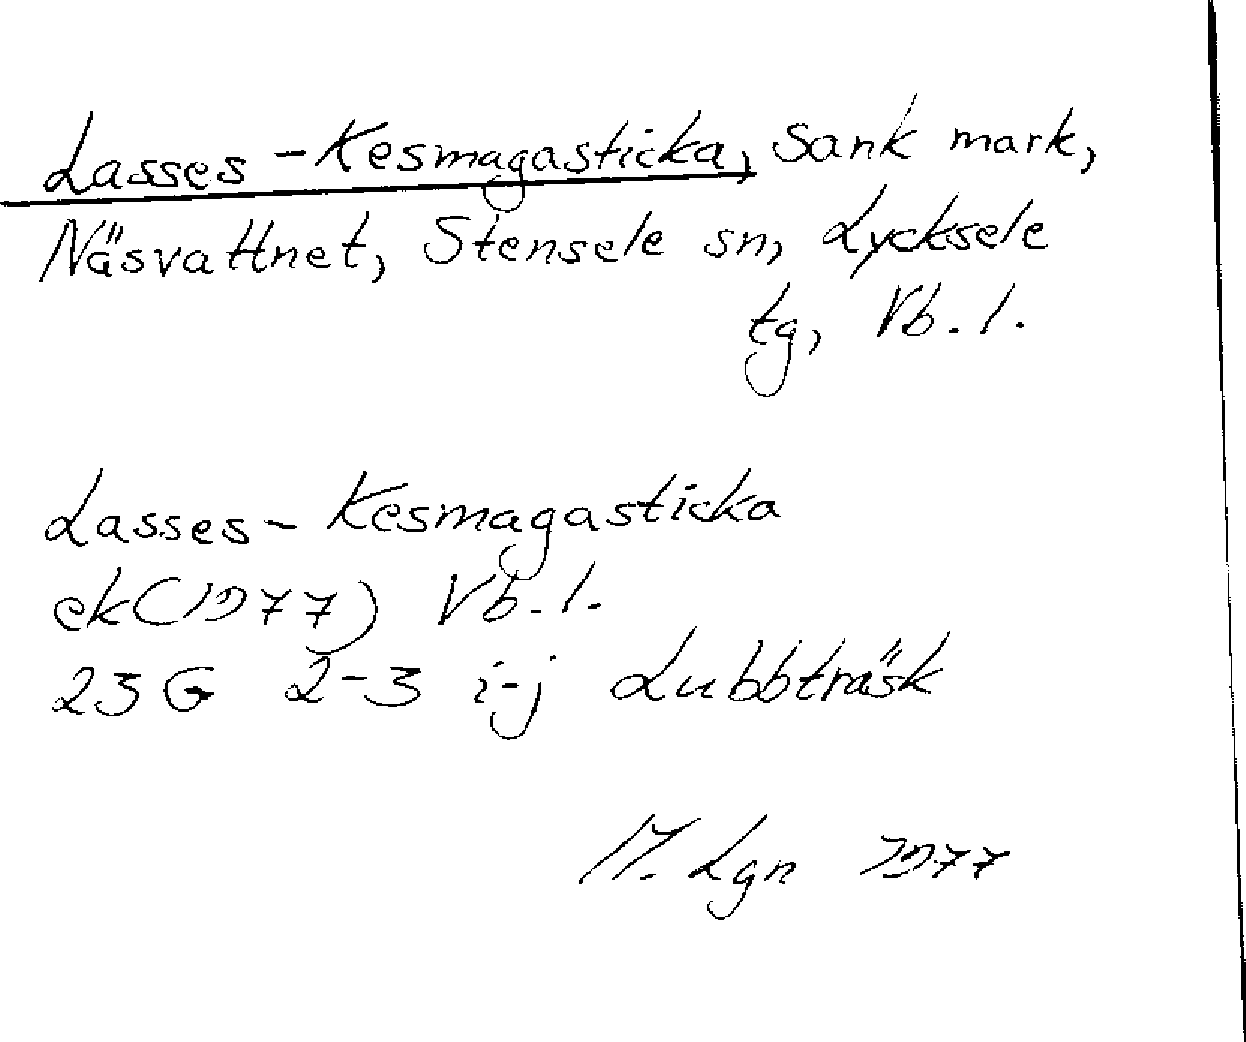 Lasses-Kesmagasticka, Sank mark,
Näsvattnet, Stensele sn, Lycksele
tg, Vb. l.
Lasses-Kesmagasticka
ek(1977) Vb. l.
23 G 2-3 i-j Lubbträsk
M. Lgn 1977